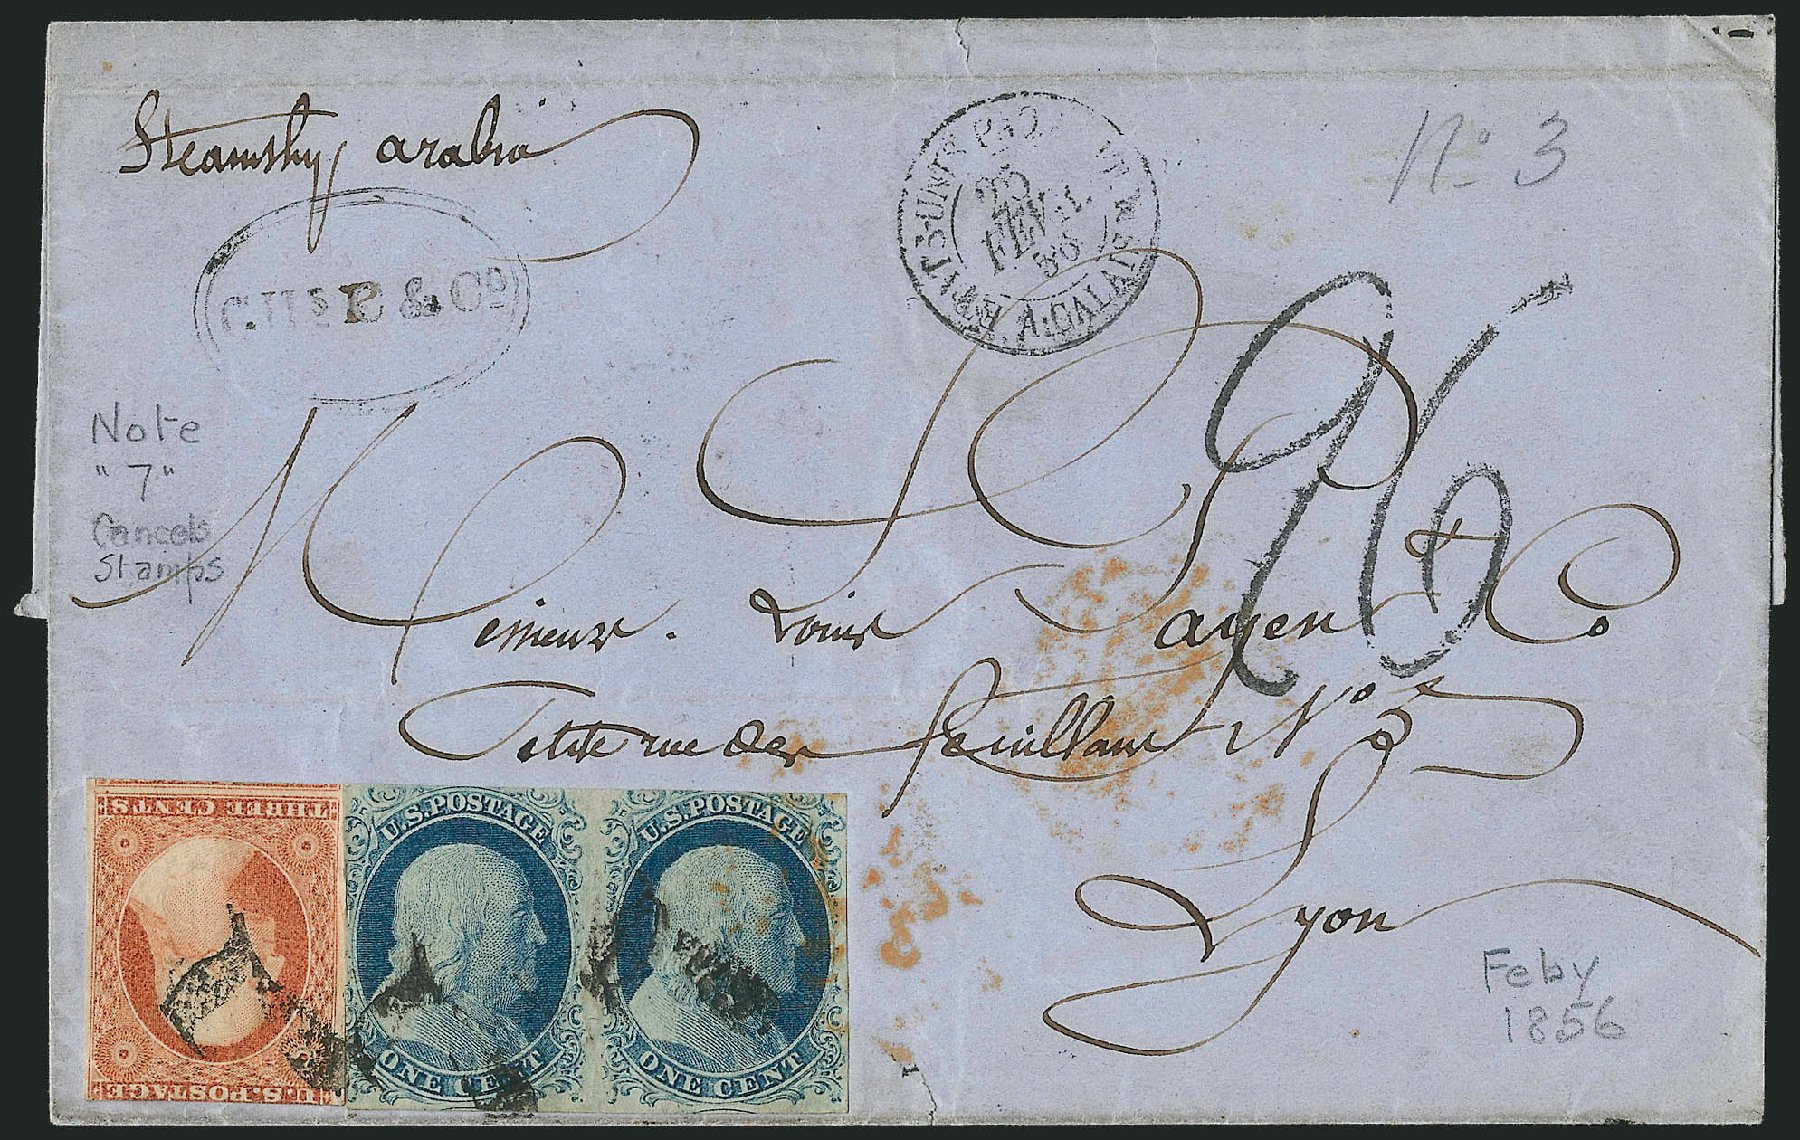 Steamship arabia
Nº 3
ETATS-UNIS PAQ.
25
FEVR.
56
A. CALAIS
& Cº
26
Note
"7"
Cancels
Stamps
Messieurs. Louis Payen & Co
Petite rue des feuillans Nº
Lyon
Feby
1856
THREE CENTS
U.S. POSTAGE
U.S. POSTAGE
ONE CENT
U.S. POSTAGE
ONE CENT